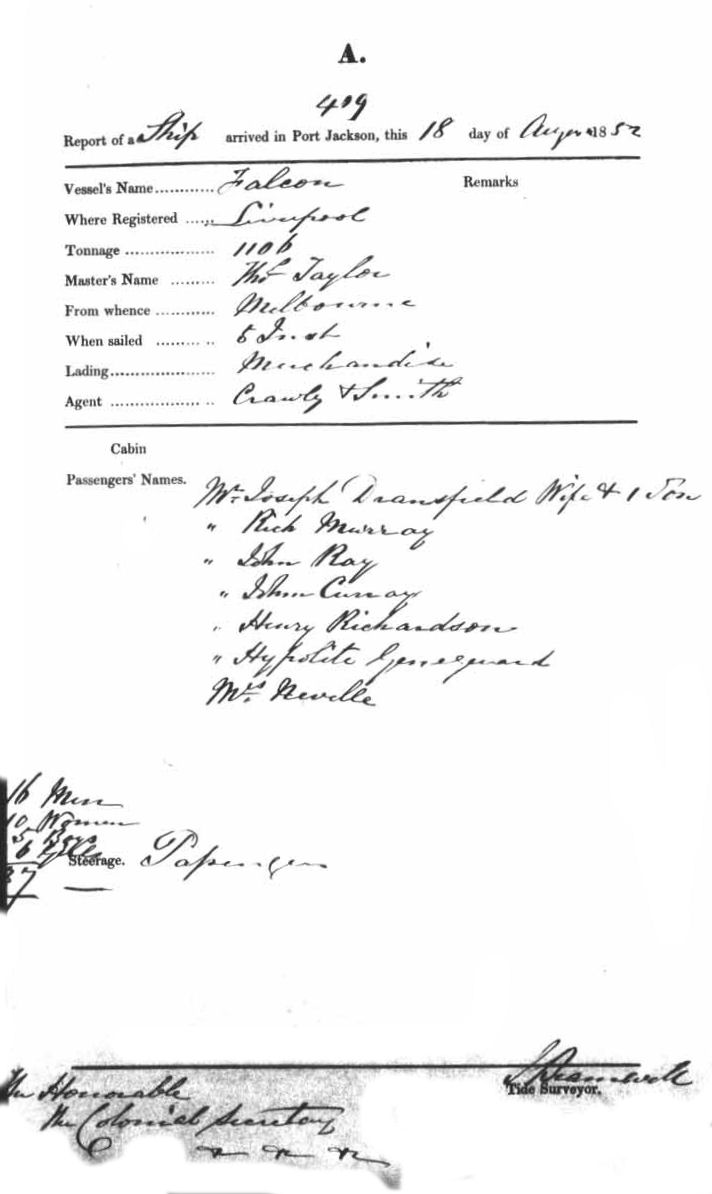 A.
409
Report of a Ship arrived in Port Jackson, this 18 day of August 1852
Vessel's Name ............ Falcon Remarks
Where Registered ...... Liverpool
Tonnage .................. 1106
Master's Name ......... Thos Taylor
From whence ............ Melbourne
When sailed ......... .. 5 Inst
Lading...................... Merchandise
Agent .................. .. Crawly & Smith
Cabin
Passengers' Names.
Mr. Joseph Dransfield Wife & 1 Son
" Rich Murray
" John Ray
" John Curray
" Henry Richardson
" Hypolite
Mrs. Neville
16 Men
10 Women
5 Boys
6
37
Steerage. Passengers
Tide Surveyor.
The Honorable
The Colonial Secretary